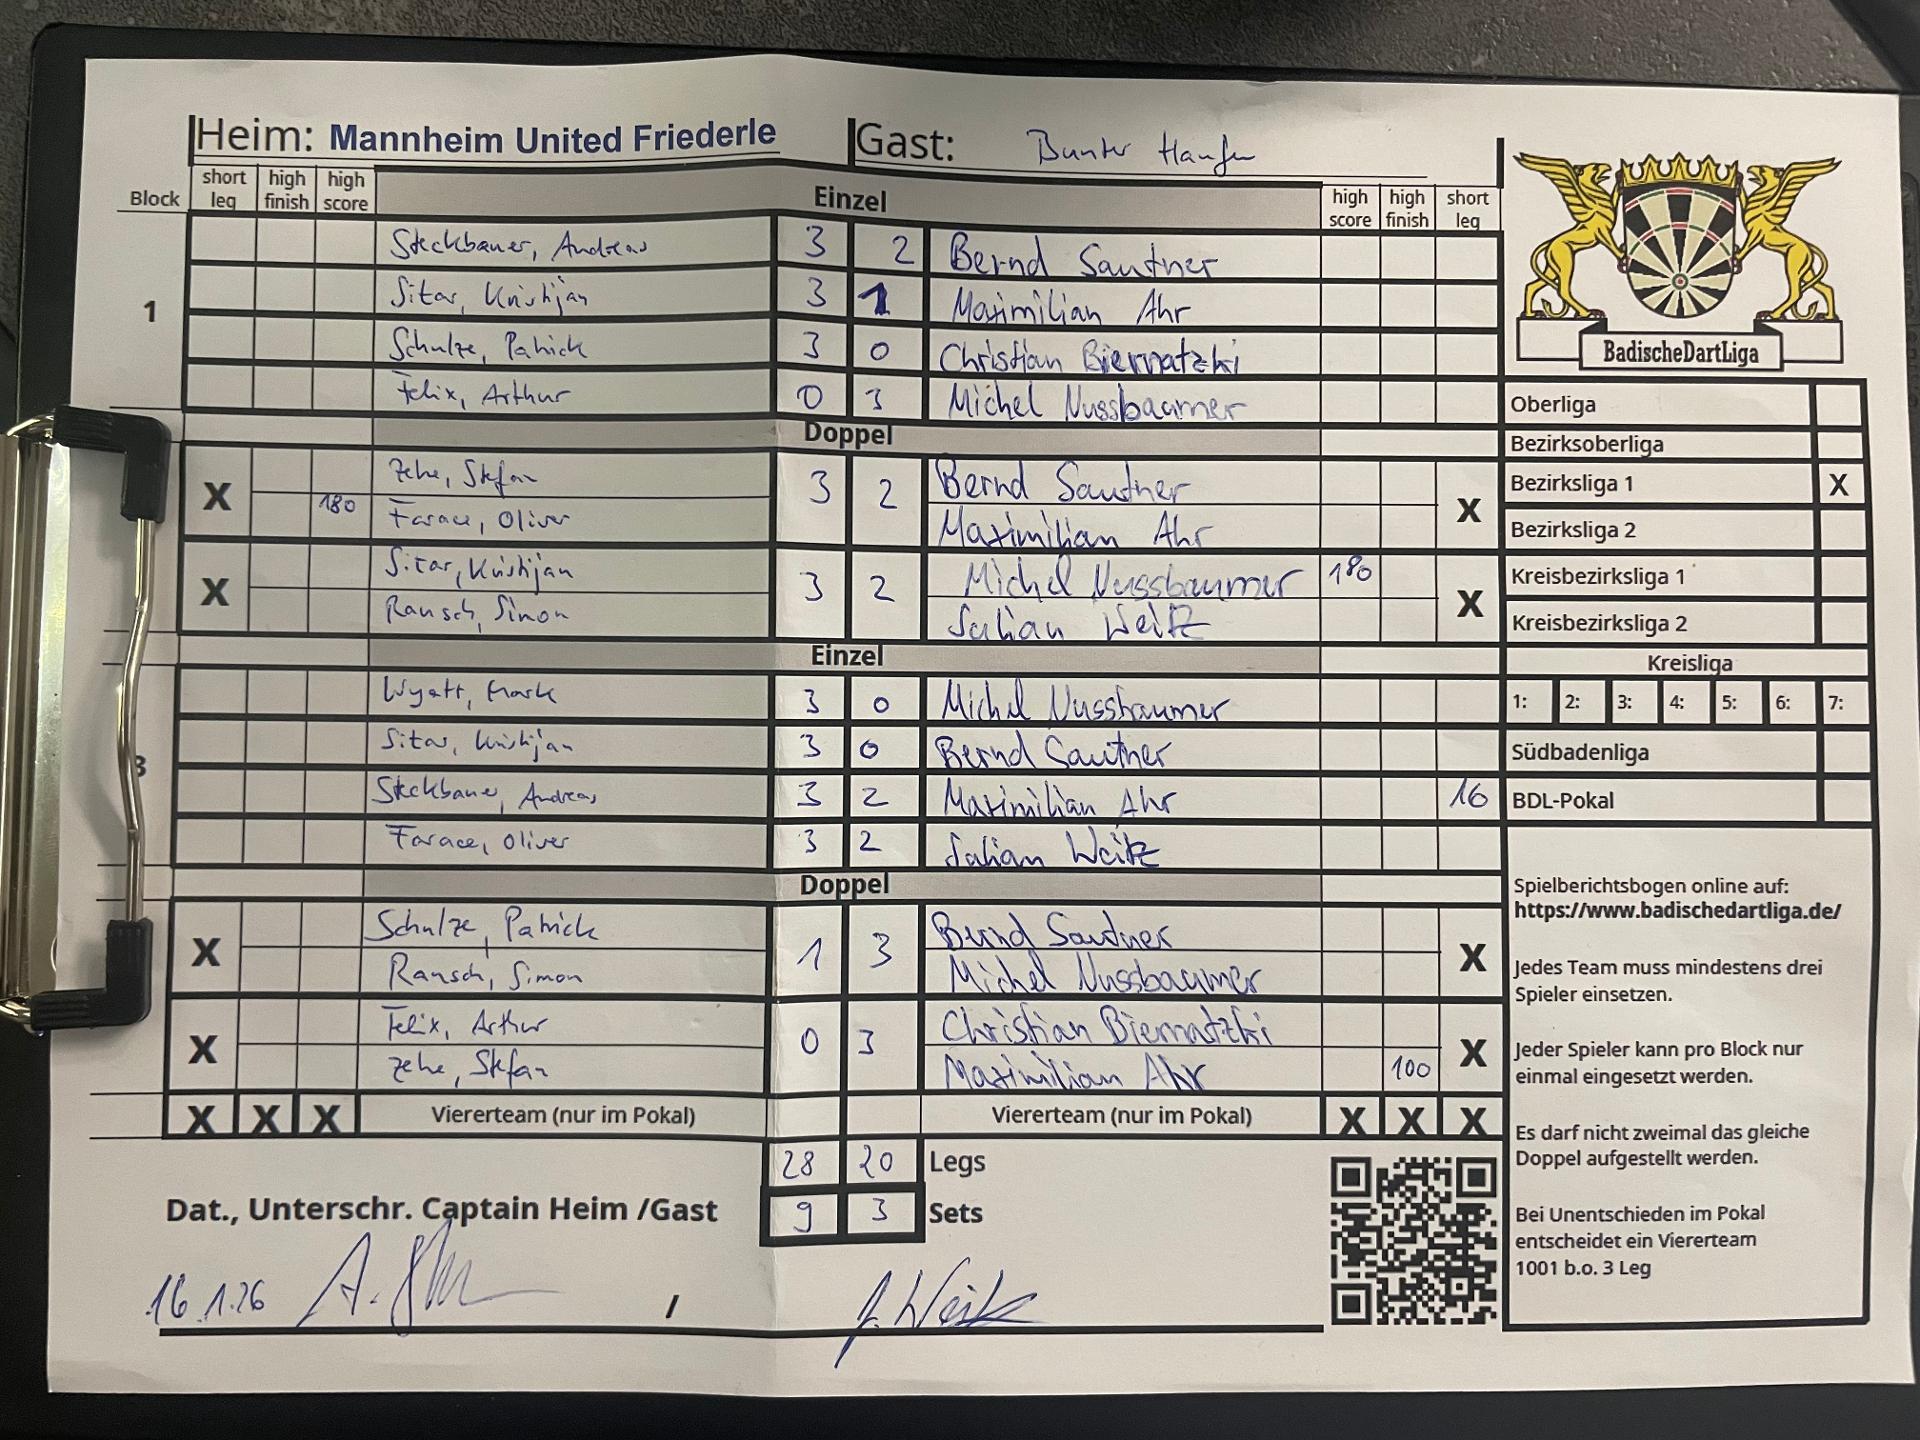 Heim: Mannheim United Friederle Gast: Bunter Haufen
Block short leg high finish high score Einzel high score high finish short leg
1
Steckbauer, Andreas 3 2 Bernd Sautner
Sitar, Kristijan 3 1 Maximilian Ahr
Schulze, Patrick 3 0 Christian Biernatzki
Felix, Arthur 0 3 Michel Nussbaumer
Doppel
X Zehe, Stefan 3 2 Bernd Sautner X
180 Farace, Oliver Maximilian Ahr
X Sitar, Kristijan 3 2 Michel Nussbaumer 180 X
Rausch, Simon Julian Weitz
Einzel
3
Wyatt, Mark 3 0 Michel Nussbaumer
Sitar, Kristijan 3 0 Bernd Sautner
Steckbauer, Andreas 3 2 Maximilian Ahr 16
Farace, Oliver 3 2 Julian Weitz
Doppel
X Schulze, Patrick 1 3 Bernd Sautner X
Rausch, Simon Michel Nussbaumer
X Felix, Arthur 0 3 Christian Biernatzki X
Zehe, Stefan Maximilian Ahr 100
X X X Viererteam (nur im Pokal) Viererteam (nur im Pokal) X X X
28 20 Legs
Dat., Unterschr. Captain Heim /Gast 9 3 Sets
16.1.26 / J. Weitz
BadischeDartLiga
Oberliga
Bezirksoberliga
Bezirksliga 1 X
Bezirksliga 2
Kreisbezirksliga 1
Kreisbezirksliga 2
Kreisliga
1: 2: 3: 4: 5: 6: 7:
Südbadenliga
BDL-Pokal
Spielberichtsbogen online auf:
https://www.badischedartliga.de/
Jedes Team muss mindestens drei
Spieler einsetzen.
Jeder Spieler kann pro Block nur
einmal eingesetzt werden.
Es darf nicht zweimal das gleiche
Doppel aufgestellt werden.
Bei Unentschieden im Pokal
entscheidet ein Viererteam
1001 b.o. 3 Leg